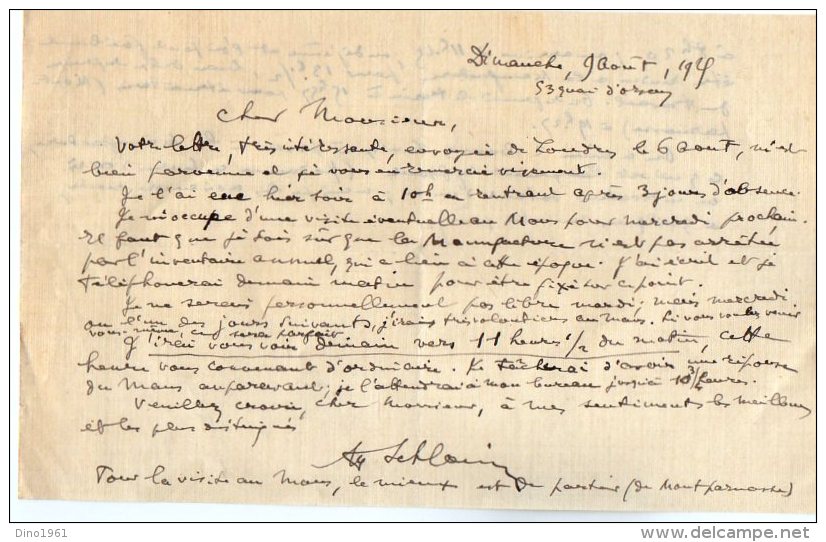 Dimanche, 9 Août, 19
53 quai d'orsay
Cher Monsieur,
Votre lettre, très intéressante, envoyée de Londres le 6 Août, m'est
bien parvenue et je vous en remercie vivement.
Je l'ai eue hier soir à 10h en rentrant après 3 jours d'absence.
Je m'occupe d'une visite éventuelle au Mans pour mercredi prochain.
Il faut que je sois sûr que la Manufacture n'est pas arrêtée
par l'inventaire annuel, qui a lieu à cette époque. J'ai écrit et je
téléphonerai demain matin pour être fixé sur ce point.
Je ne serais personnellement pas libre mardi; mais mercredi
ou l'un des jours suivants, j'irais très volontiers au Mans. Si vous voulez venir
vous même, ce sera parfait
J'irai vous voir demain vers 11 heures 1/2 du matin, cette
heure vous convenant d'ordinaire. Je tâcherai d'avoir une réponse
du Mans auparavant; je l'attendrai à mon bureau jusqu'à 10 3/4 heures.
Veuillez croire, cher Monsieur, à mes sentiments les meilleurs
et les plus distingués
Pour la visite au Mans, le mieux est de partir (de Montparnasse)
Dino1961
www.delcampe.net